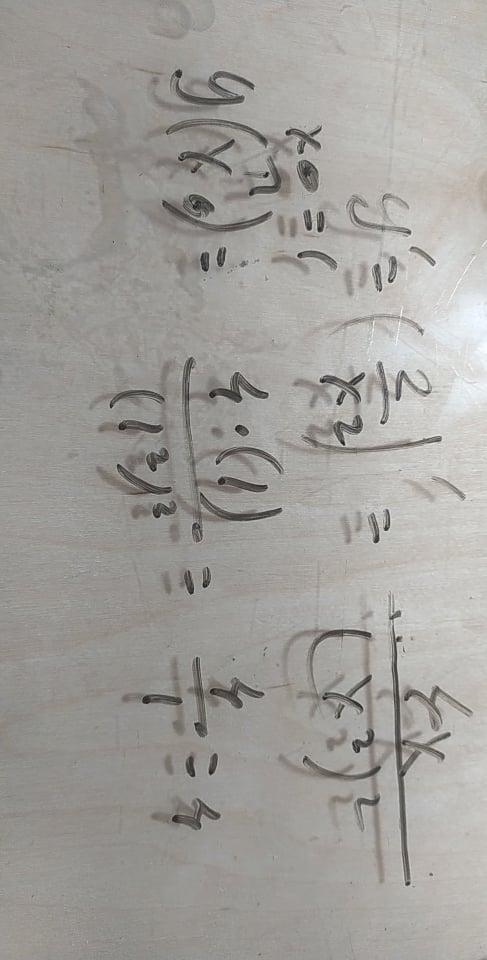 y' = (2/x²)' = 4x/(x²)²
x₀ = 1
y(x₀) = 4·(1)/(1²)² = 4/1 = 4